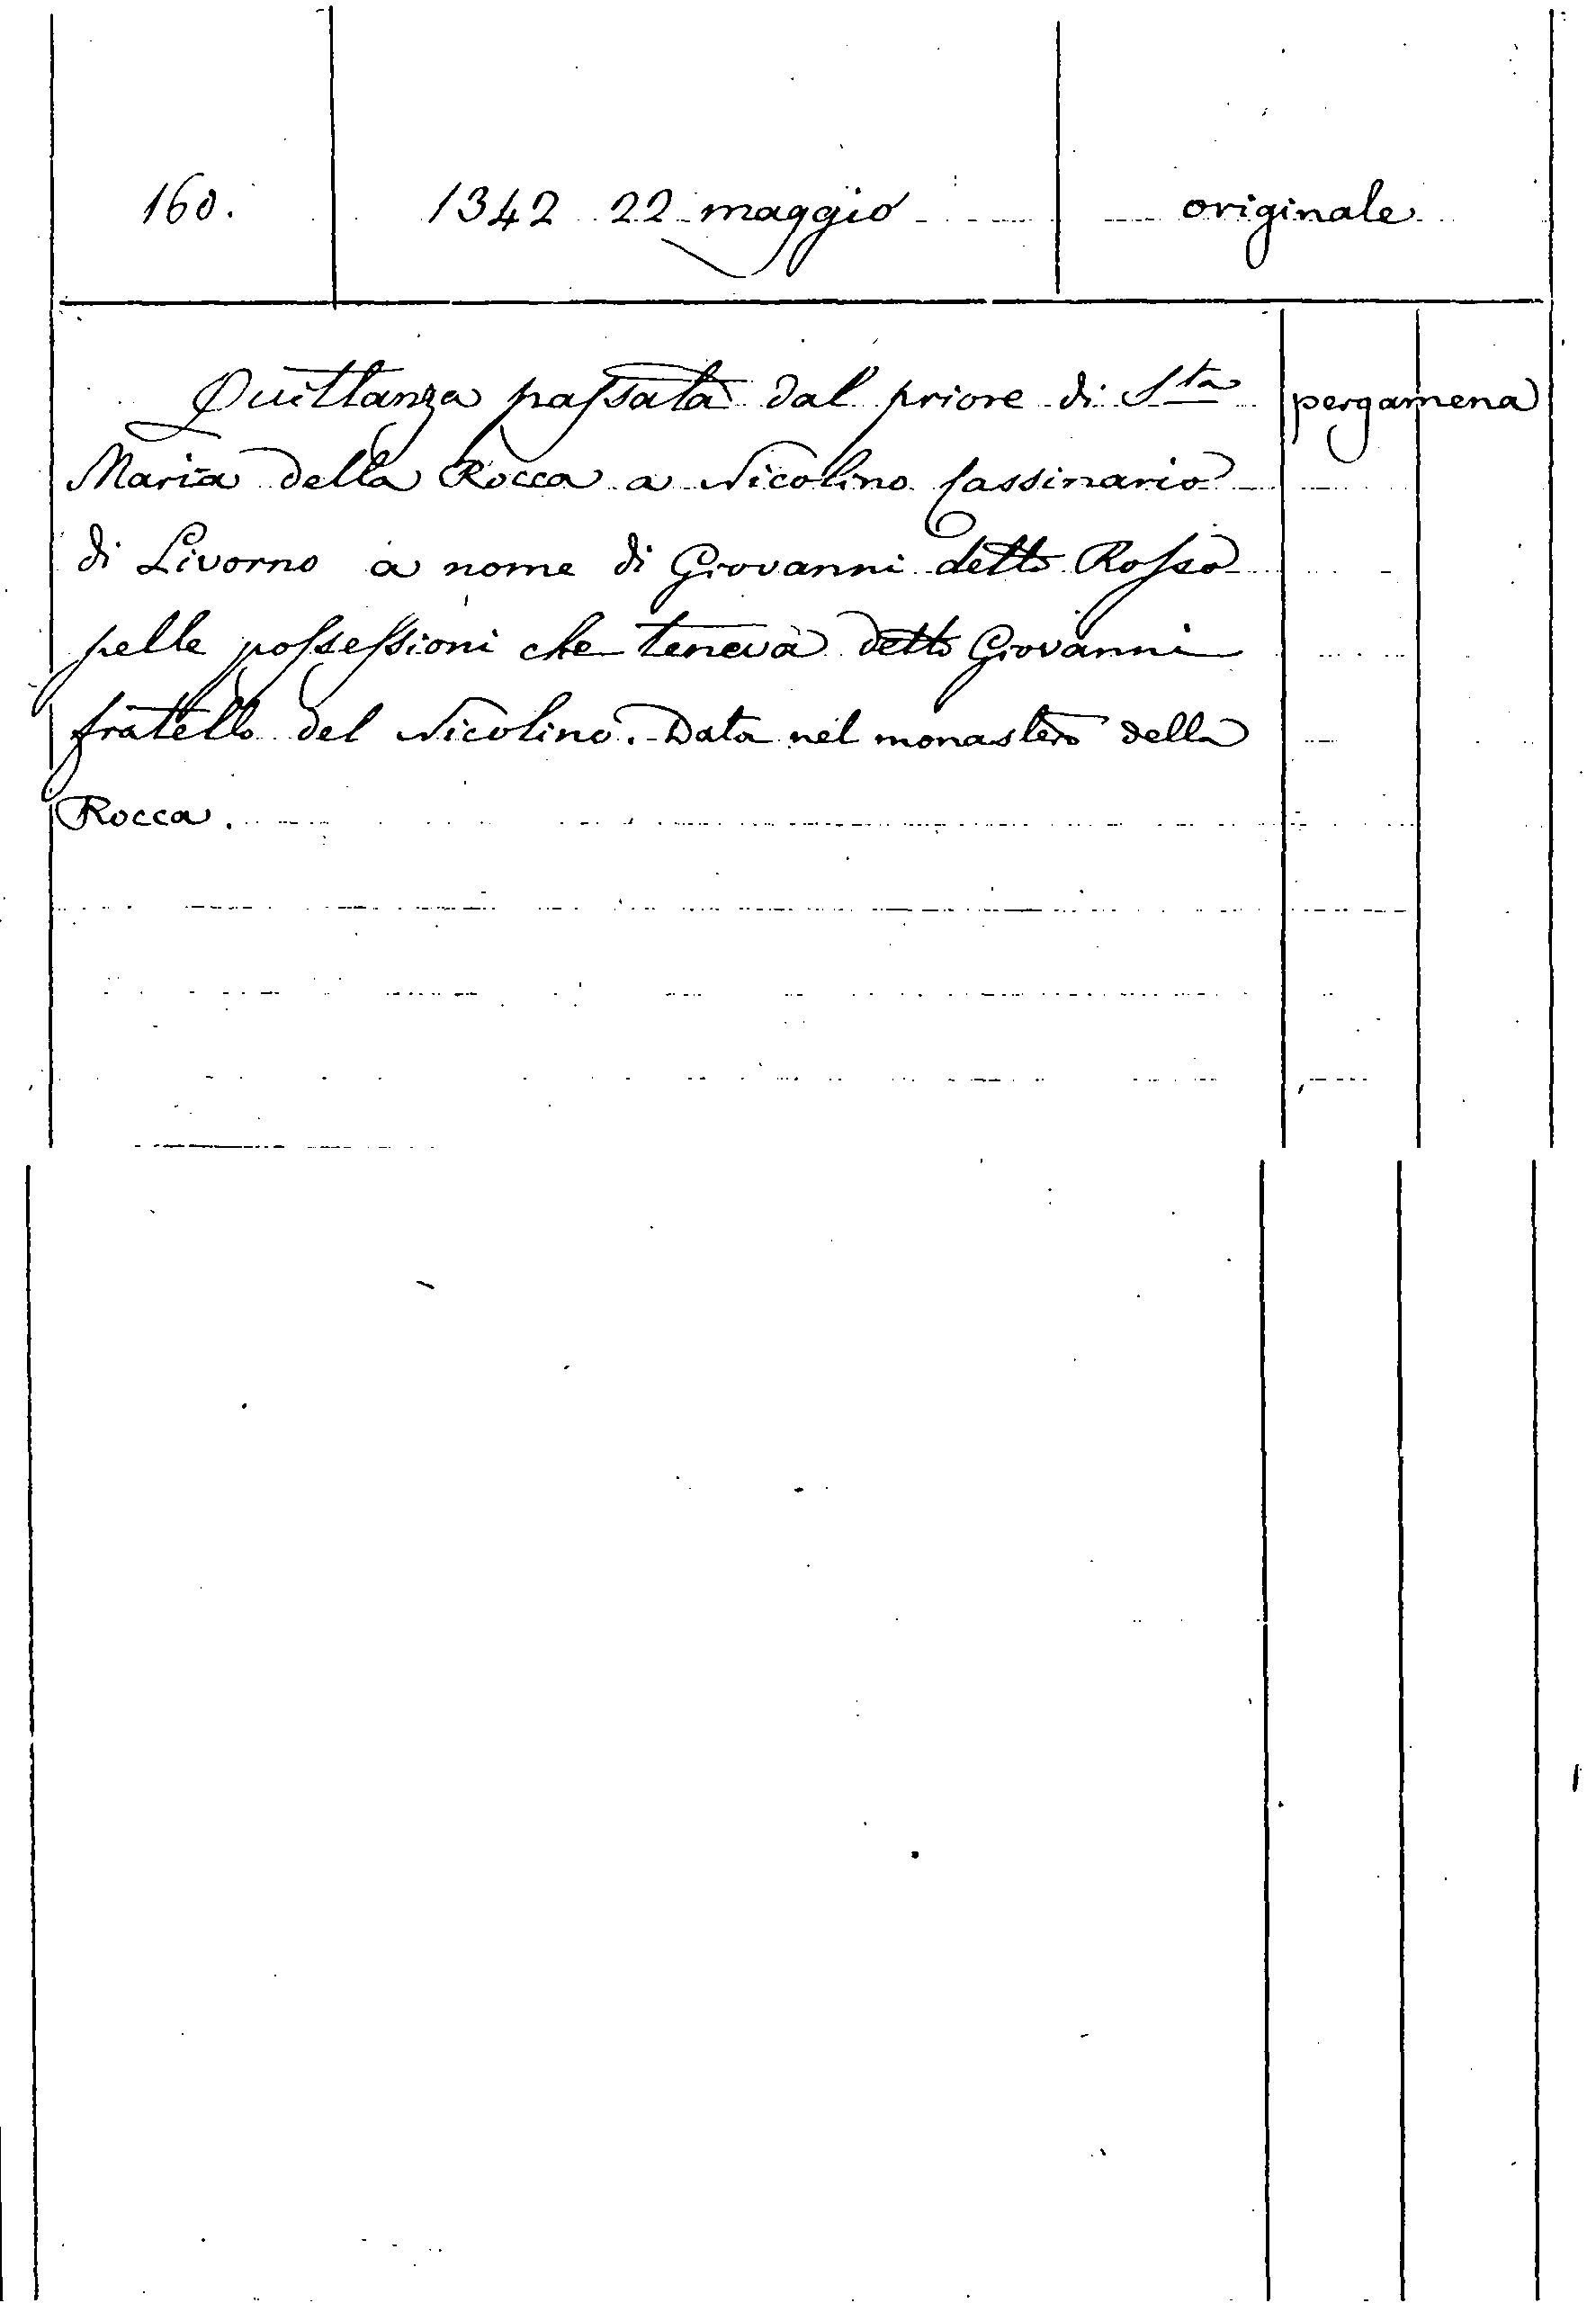 160.
1342 22 maggio
originale
Quittanza passata dal priore di S.ta
pergamena
Maria della Rocca a Nicolino Cassinario
di Livorno a nome di Giovanni detto Rosso
pelle possessioni che teneva detto Giovanni
fratello del Nicolino. Data nel monastero della
Rocca.